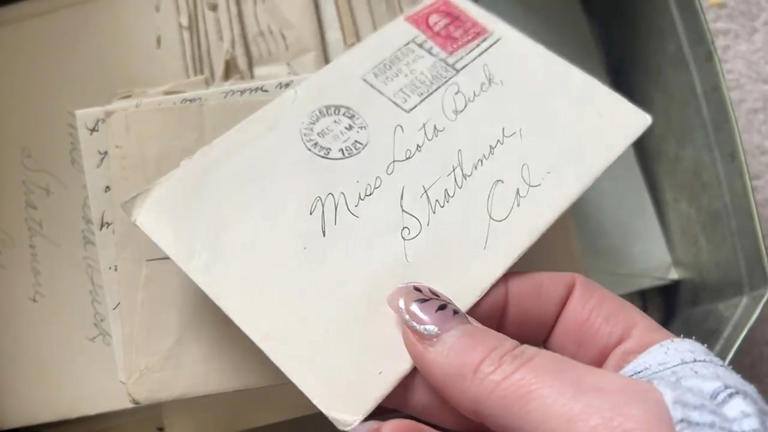 SAN FRANCISCO, CALIF.
DEC 31
1921
ADDRESS
YOUR MAIL
TO
STREET AND
NUMBER
Miss Leota Buck,
Strathmore,
Cal.
Buck
Strathmore,